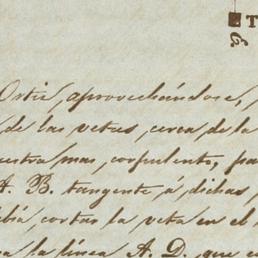 T
Ortiz, aprovechándose,
de las vetas, cerca de la
uestra mas, corpulento, pa
A. B. tangente á dichas,
bia cortar la veta en el
a la línea A. D, que